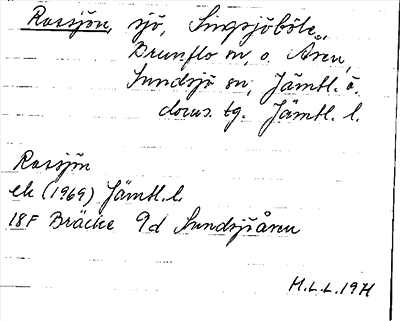 Rassjön, sjö, Singsjöböle,
Brunflo sn, o. Åsen,
Sundsjö sn, Jämtl. ö.
doms. tg. Jämtl. l.
Rassjön
ek (1969) Jämtl. l.
18F Bräcke 9d Sundsjöåsen
M.L.L. 1974